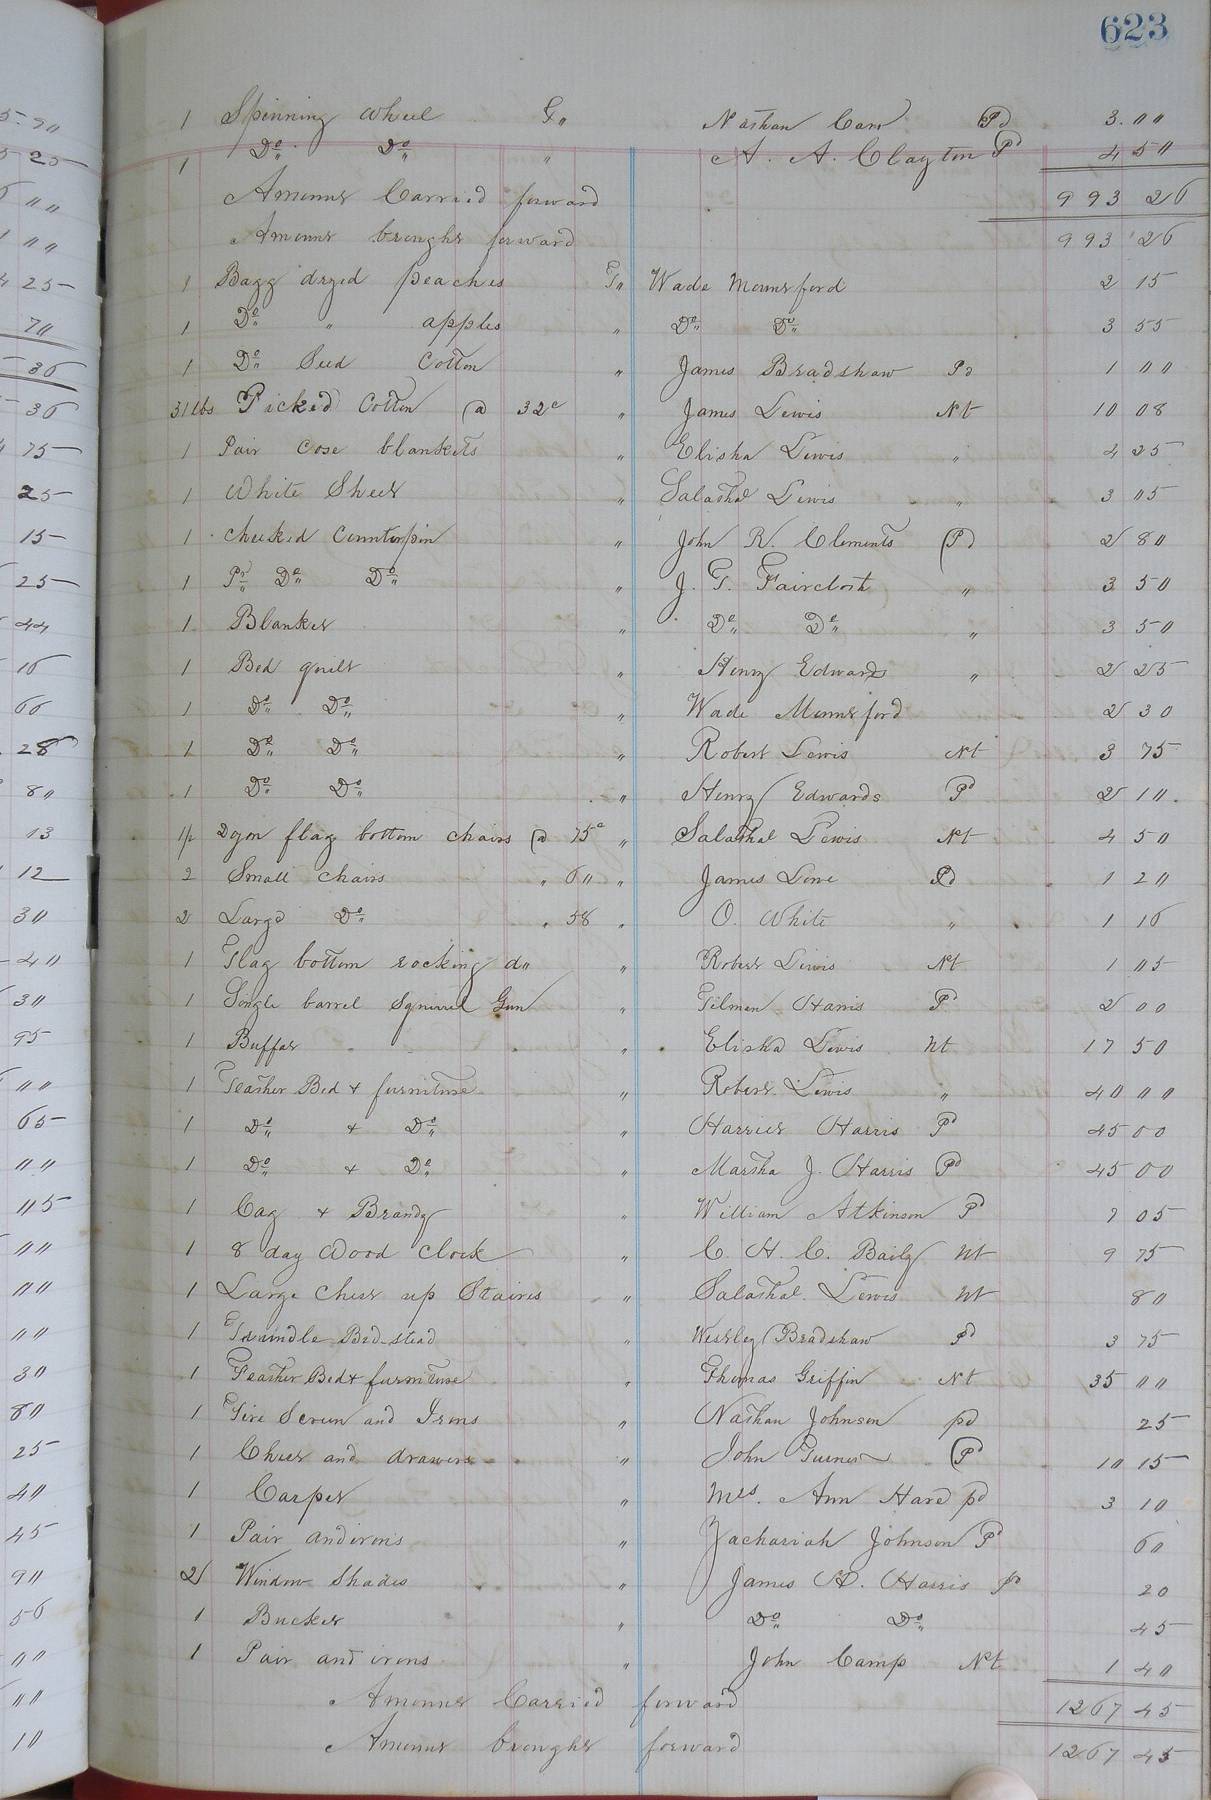 623
1 Spinning Wheel G" Nathan Carr Pd 3.""
1 Do Do " A. A. Clayton Pd 4 50
Amount Carried forward 993 26
Amount brought forward 993 26
1 Bagg dryed peaches T" Wade Mountford 2 15
1 Do " apples " Do Do 3 55
1 Do Seed Cotton " James Bradshaw Pd 1 ""
31 lbs Picked Cotton @ 32c " James Lewis Nt 10 08
1 Pair Cose blankets " Elisha Lewis " 4 25
1 White Sheet " Salathal Lewis " 3 "5
1 checked Counterpin " John R. Clements Pd 2 80
1 Pr Do Do " J. T. Faircloth " 3 50
1 Blanket " Do Do " 3 50
1 Bed quilt " Henry Edwards " 2 25
1 Do Do " Wade Mountford 2 30
1 Do Do " Robert Lewis Nt 3 75
1 Do Do " Henry Edwards Pd 2 1"
Dozon flag bottom chairs @ 75c " Salathal Lewis Nt 4 50
2 Small chairs " 6" " James Lane Pd 1 20
2 Large Do " 58 " O. White " 1 16
1 Flag bottom rocking do " Robert Lewis Nt 1 "5
1 Single barrel Squirrel Gun " Tilman Harris Pd 2 00
1 Buffat " Elisha Lewis Nt 17 50
1 Feather Bed & furniture " Robert Lewis " 40 ""
1 Do & Do " Harriet Harris Pd 45 00
1 Do & Do " Martha J. Harris Pd 45 00
1 Cag & Brandy " William Atkinson Pd 7 05
1 8 day Wood Clock " C. H. C. Baily Nt 9 75
1 Large Chest up Staires " Salathal Lewis Nt 80
1 Trundle Bed-stead " Weslley Bradshaw Pd 3 75
1 Feather Bed & furniture " Thomas Griffin Nt 35 ""
1 Fire Screen and Irons " Nathan Johnson pd 25
1 Chest and drawers " John Pd 10 15
1 Carpet " Mrs. Ann Hare pd 3 10
1 Pair andirons " Zachariah Johnson Pd 60
2 Window Shades " James H. Harris pd 20
1 Bucket " Do Do 45
1 Pair and irons " John Camp Nt 1 40
Amount Carried forward 1267 45
Amount brought forward 1267 45